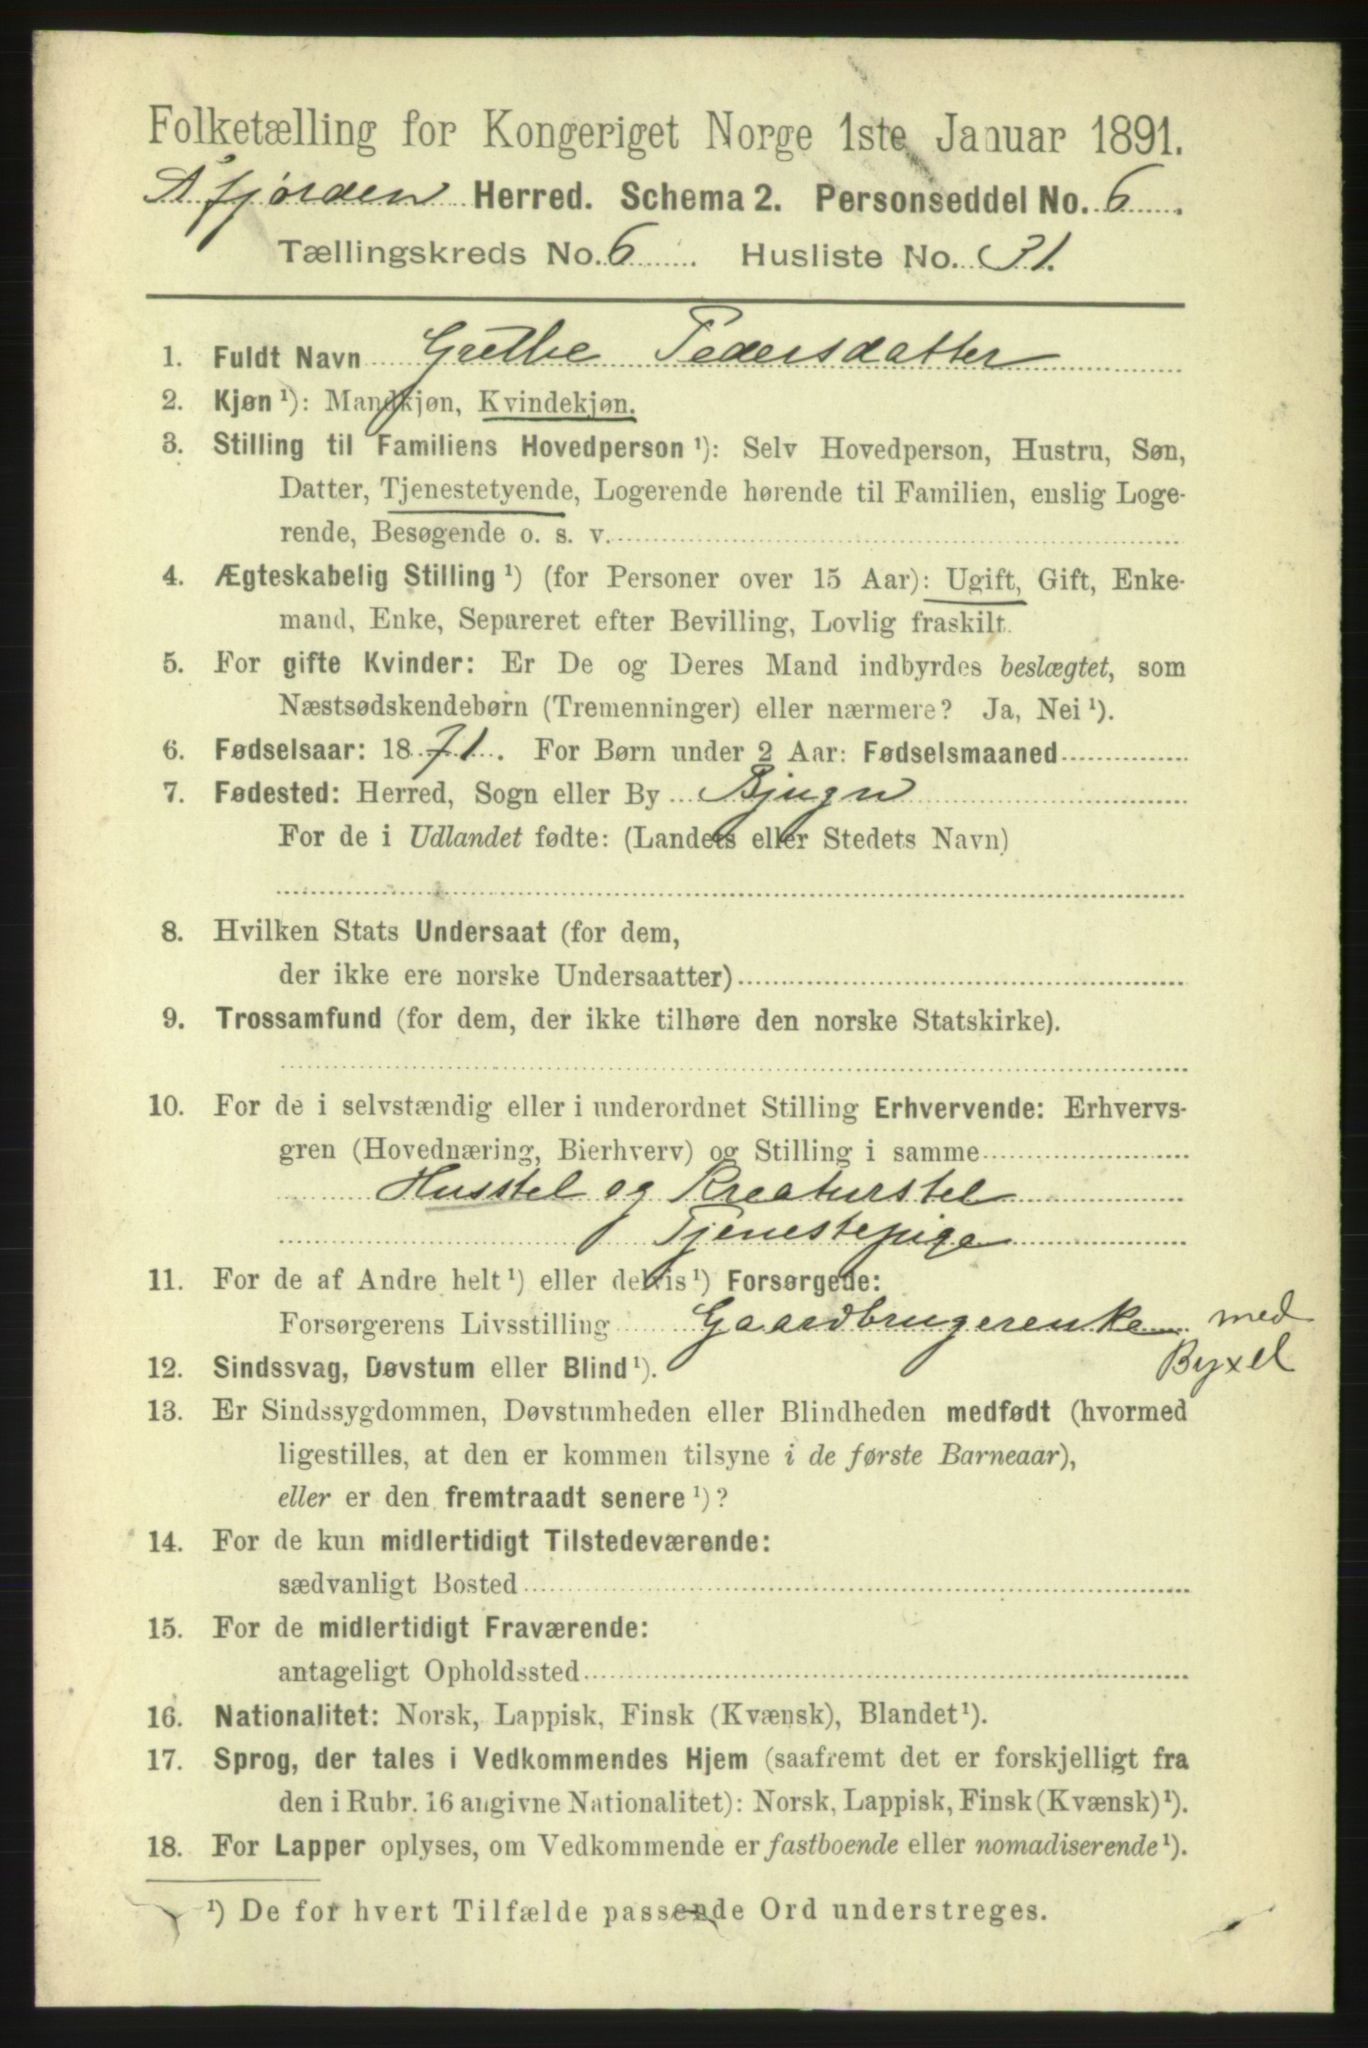 Folketælling for Kongeriget Norge 1ste Januar 1891.
Åfjorden Herred. Schema 2. Personseddel No. 6.
Tællingskreds No. 6. Husliste No. 31.
1. Fuldt Navn Grethe Pedersdatter
2. Kjøn ¹): Mandkjøn, Kvindekjøn.
3. Stilling til Familiens Hovedperson ¹): Selv Hovedperson, Hustru, Søn,
Datter, Tjenestetyende, Logerende hørende til Familien, enslig Loge-
rende, Besøgende o. s. v.
4. Ægteskabelig Stilling ¹) (for Personer over 15 Aar): Ugift, Gift, Enke-
mand, Enke, Separeret efter Bevilling, Lovlig fraskilt.
5. For gifte Kvinder: Er De og Deres Mand indbyrdes beslægtet, som
Næstsødskendebørn (Tremenninger) eller nærmere? Ja, Nei ¹).
6. Fødselsaar: 1871. For Børn under 2 Aar: Fødselsmaaned
7. Fødested: Herred, Sogn eller By Bjugn
For de i Udlandet fødte: (Landets eller Stedets Navn)
8. Hvilken Stats Undersaat (for dem,
der ikke ere norske Undersaatter)
9. Trossamfund (for dem, der ikke tilhøre den norske Statskirke).
10. For de i selvstændig eller i underordnet Stilling Erhvervende: Erhvervs-
gren (Hovednæring, Bierhverv) og Stilling i samme
Husstel og Kreaturstel
Tjenestepige
11. For de af Andre helt ¹) eller delvis ¹) Forsørgede:
Forsørgerens Livsstilling Gaardbrugerenke med
Byxel
12. Sindssvag, Døvstum eller Blind ¹).
13. Er Sindssygdommen, Døvstumheden eller Blindheden medfødt (hvormed
ligestilles, at den er kommen tilsyne i de første Barneaar),
eller er den fremtraadt senere ¹)?
14. For de kun midlertidigt Tilstedeværende:
sædvanligt Bosted
15. For de midlertidigt Fraværende:
antageligt Opholdssted
16. Nationalitet: Norsk, Lappisk, Finsk (Kvænsk), Blandet ¹).
17. Sprog, der tales i Vedkommendes Hjem (saafremt det er forskjelligt fra
den i Rubr. 16 angivne Nationalitet): Norsk, Lappisk, Finsk (Kvænsk) ¹).
18. For Lapper oplyses, om Vedkommende er fastboende eller nomadiserende ¹).
¹) De for hvert Tilfælde passende Ord understreges.